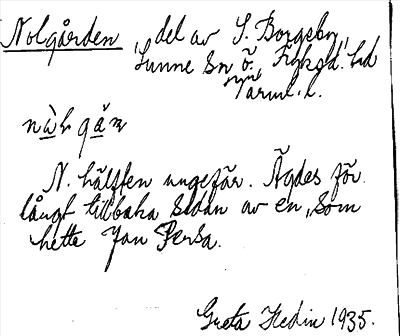 Nolgården, del av S. Borgeby,
Sunne sn ö. Fryksd. hd
Värml. l.
N. hälften ungefär. Ägdes för
långt tillbaka sedan av en, som
hette Jan Persa.
Greta Hedin 1935.